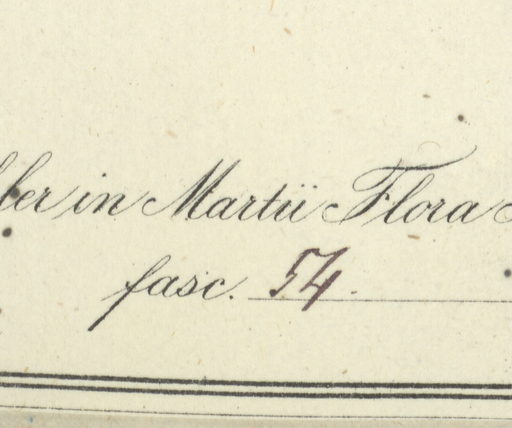 in Martii Flora
fasc. 54.